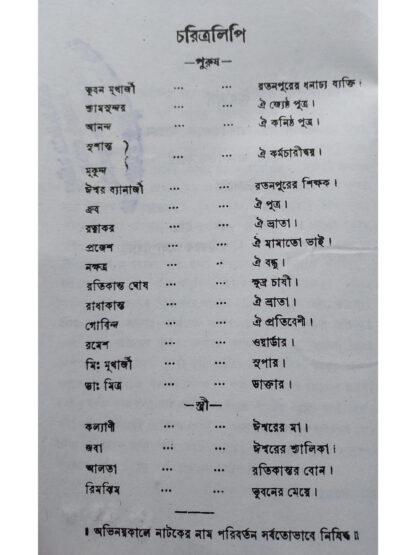 চরিত্রলিপি
—পুরুষ—
ভুবন মুখার্জী ... ... রতনপুরের ধনাঢ্য ব্যক্তি।
শ্যামসুন্দর ... ... ঐ জ্যেষ্ঠ পুত্র।
আনন্দ ... ... ঐ কনিষ্ঠ পুত্র।
সুশান্ত
} ... ... ঐ কর্মচারীদ্বয়।
মুকুন্দ
ঈশ্বর ব্যানার্জী ... ... রতনপুরের শিক্ষক।
ধ্রুব ... ... ঐ পুত্র।
রত্নাকর ... ... ঐ ভ্রাতা।
প্রজেশ ... ... ঐ মামাতো ভাই।
নক্ষত্র ... .. ঐ বন্ধু।
রতিকান্ত ঘোষ ... ... ক্ষুদ্র চাষী।
রাধাকান্ত ... ... ঐ ভ্রাতা।
গোবিন্দ ... ... ঐ প্রতিবেশী।
রমেশ ... ... ওয়ার্ডার।
মিঃ মুখার্জী ... ... সুপার।
ডাঃ মিত্র ... ... ডাক্তার।
—স্ত্রী—
কল্যাণী ... ... ঈশ্বরের মা।
জবা ... ... ঈশ্বরের শ্যালিকা।
আলতা ... ... রতিকান্তর বোন।
রিমঝিম ... ... ভুবনের মেয়ে।
॥ অভিনয়কালে নাটকের নাম পরিবর্তন সর্বতোভাবে নিষিদ্ধ ॥